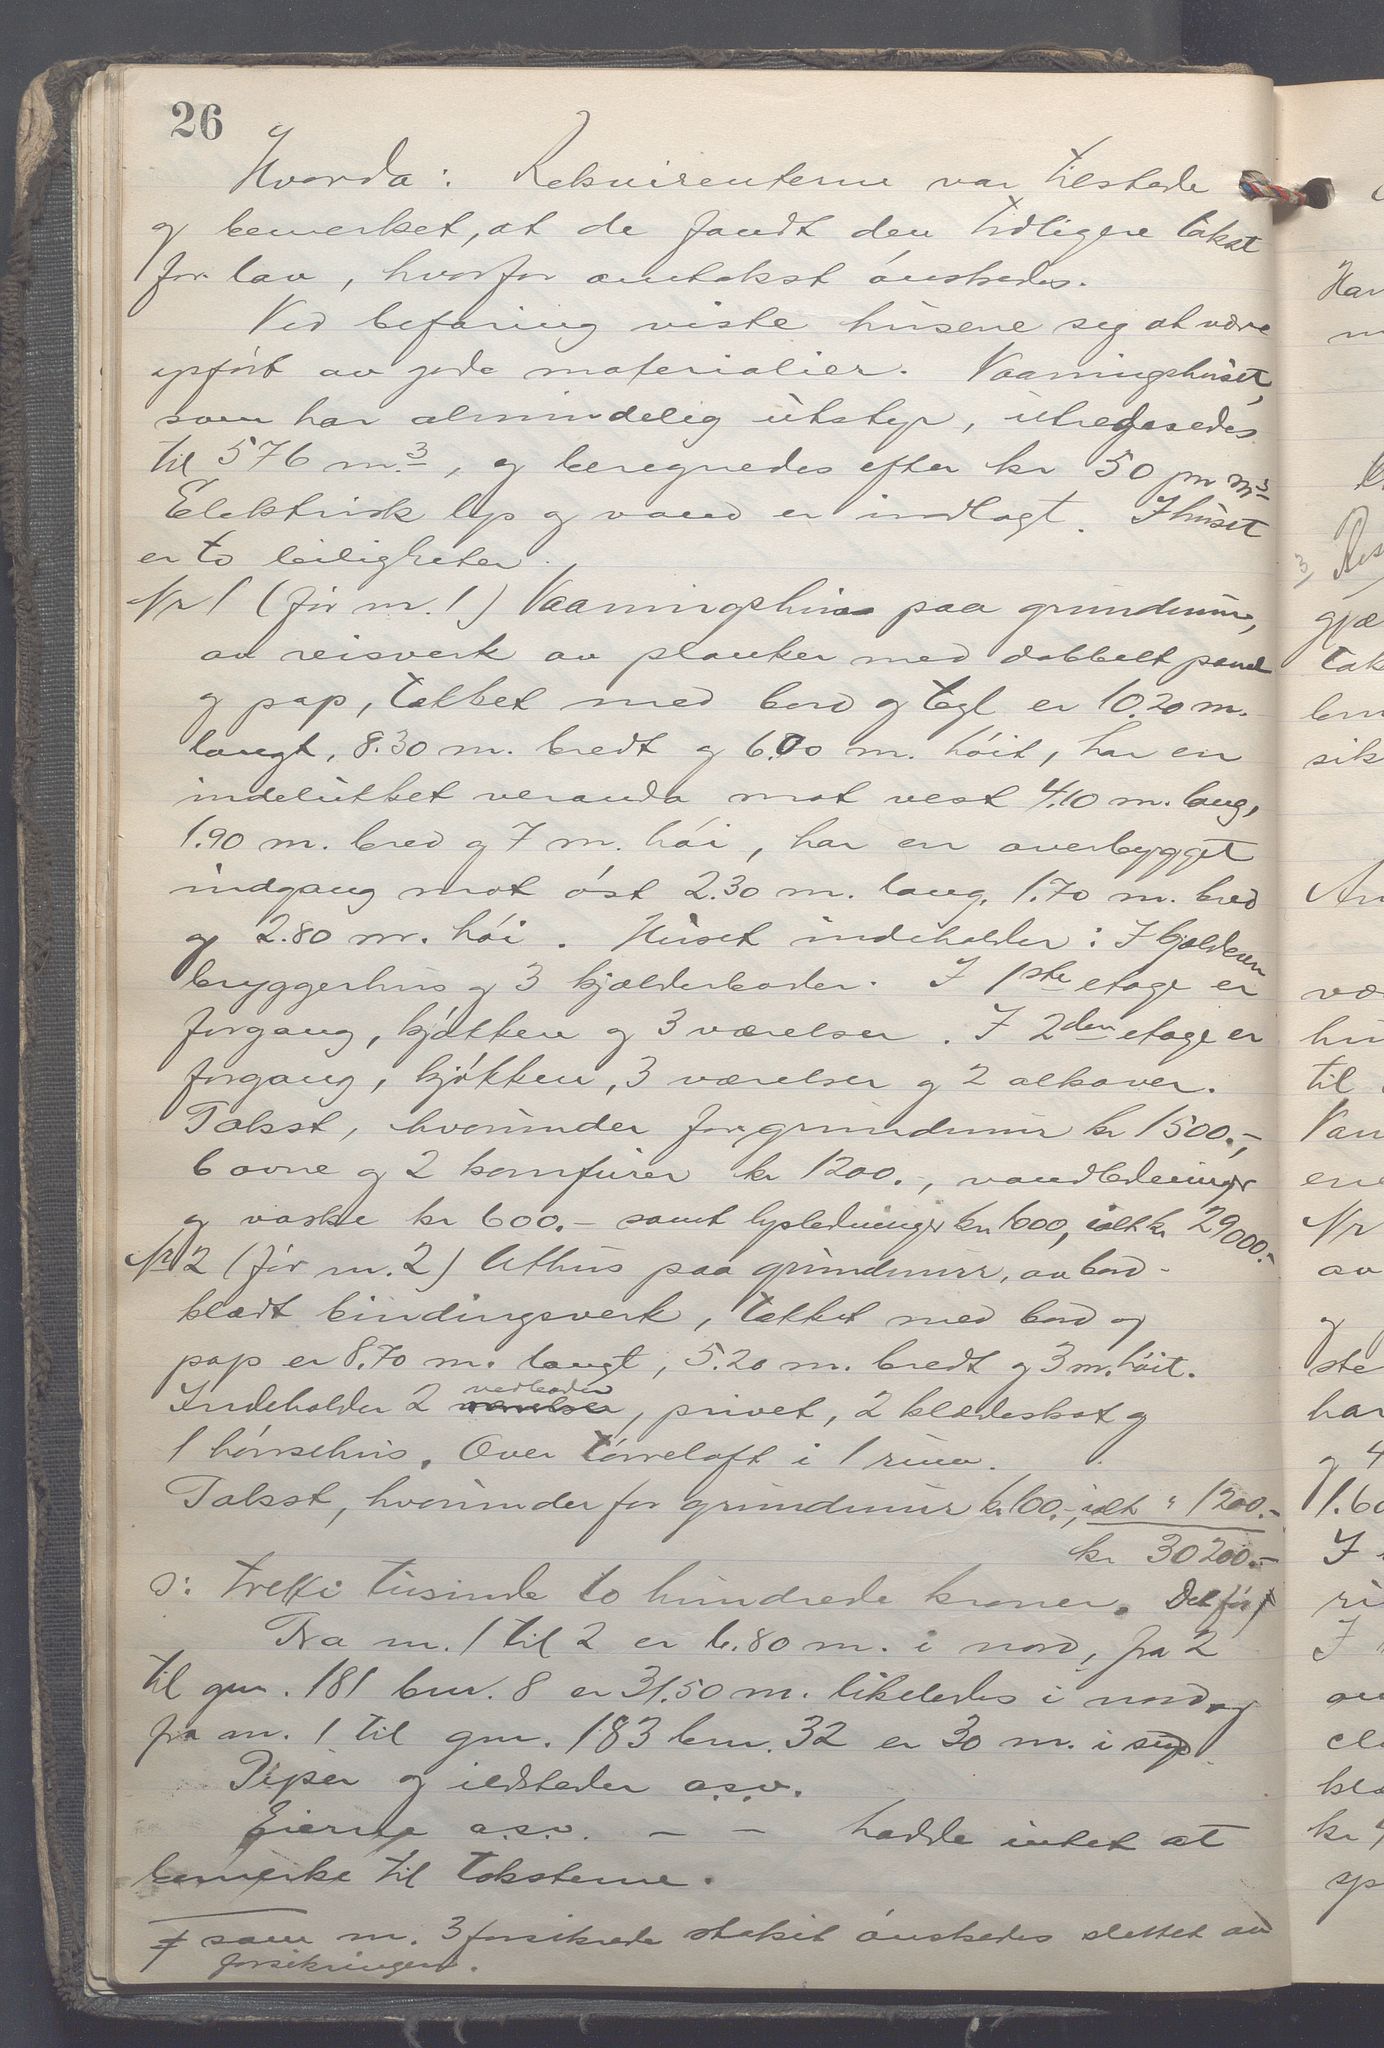 26
Hvorda: Rekvirenterne var tilstede
og bemerket, at de fandt den tidligere takst
for lav, hvorfor omtakst ønskedes.
Ved befaring viste husene sig at være
opført av gode materialier. Vaaningshuset,
som har almindelig utstyr, utregnedes
til 576 m.3, og beregnedes efter kr 50 pr m3
Elektrisk lys og vand er indlagt. I huset
er to leiligheter.
Nr 1 (før nr. 1) Vaaningshus paa grundmur,
av reisverk av planker med dobbelt panel
og pap, tækket med bord og tegl er 10.20 m.
langt, 8.30 m. bredt og 6.00 m. høit, har en
indelukket veranda mot vest 4.10 m. lang,
1.90 m. bred og 7 m. høi, har en overbygget
indgang mot øst 2.30 m. lang, 1.70 m. bred
og 2.80 m. høi. Huset indeholder: I kjælderen
bryggerhus og 3 kjælderboder. I 1ste etage er
forgang, kjøkken og 3 værelser. I 2den etage er
forgang, kjøkken, 3 værelser og 2 alkover.
Takst, hvorunder for grundmur kr 1500.-,
6 ovne og 2 komfurer kr 1200.-, vandledninger
og vaske kr 600.- samt lysledninger kr 1000, ialt kr 29000.-
Nr 2 (før nr. 2) Uthus paa grundmur, av bord-
klædt bindingsverk, tækket med bord og
pap er 8.70 m. langt, 5.20 m. bredt og 3 m. høit.
Indeholder 2 værelser vedboder, privet, 2 klædeskot og
1 hønsehus. Over tørreloft i 1 rum.
Takst, hvorunder for grundmur kr 100.-, ialt " 1200.-
kr 30200.-
ɔ: tretti tusinde to hundrede kroner. Det før ≠
Fra nr. 1 til 2 er 6.80 m. i nord, fra 2
til gnr. 181 bnr. 8 er 31.50 m. likeledes i nord og
fra nr. 1 til gnr. 183 bnr. 32 er 30 m. i syd.
Piper og ildsteder o.s.v.
Eierne o.s.v. – – hadde intet at
bemerke til taksterne.
≠ som nr. 3 forsikrede stakit ønskedes slettet av
forsikringen.